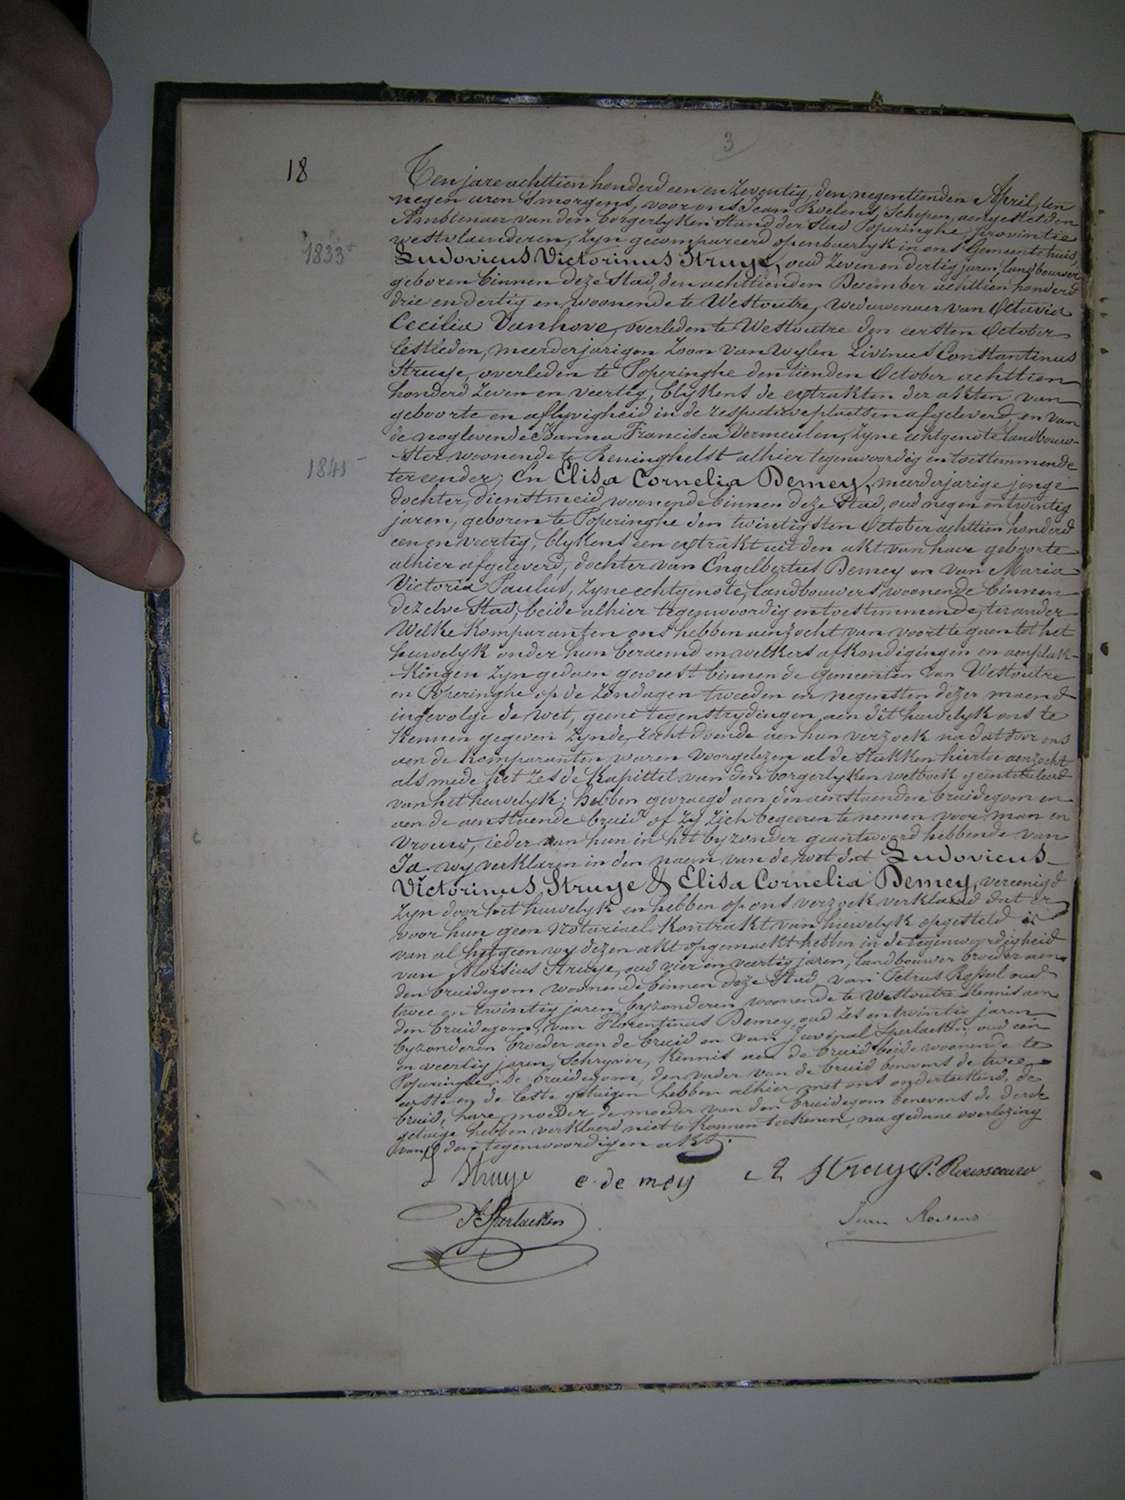 3
18
Ten jare achttien honderd een en zeventig, den negentienden April, ten
negen uren s'morgens, voor ons Jean Roelens, Schepen, aengestelden
Ambtenaer van den borgerlyken stand der stad Poperinghe, provintie
westvlaenderen, zyn gecompareerd openbaerlyk in ons Gemeentehuis,
1833
Ludovicus Victorinus Struye, oud zeven en dertig jaren, landbouwer
geboren binnen deze Stad, den achttienden December achttien honderd
drie en dertig en woonende te Westoutre, weduwenaer van Octavia
Cecilia Vanhove, overleden te Westoutre den eersten October
lestleden, meerderjarigen zoon van wylen Livinus Constantinus
Struye, overleden te Poperinghe den tienden October achttien
honderd zeven en veertig, blykens de extrakten der akten van
geboorte en aflyvigheid in de respective plaetsen afgeleverd, en van
de noglevende Joanna Francisca Vermeulen, zyne echtgenote landbouw-
ster woonende te Reninghelst alhier tegenwoordig en toestemmende
1841
ter eender, En Elisa Cornelia Demey, meerderjarige jonge
dochter, dienstmeid, woonende binnen deze Stad, oud negen en twintig
jaren, geboren te Poperinghe den twintigsten October achttien honderd
een en veertig, blykens een extrakt uit den akt van haer geboorte
alhier afgeleverd, dochter van Engelbertus Demey en van Maria
Victoria Paulus, zyne echtgenote, landbouwers woonende binnen
dezelve Stad, beide alhier tegenwoordig en toestemmende, ter ander
Welke komparanten ons hebben aenzocht van voort te gaen tot het
huwelyk onder hun beraemd en welkers afkondigingen en aenplak-
kingen zyn gedaen geweest binnen de gemeenten van Westoutre
en Poperinghe op de Zondagen tweeden en negensten dezer maend
ingevolge de wet, geene tegenstrydingen aen dit huwelyk ons te
kennen gegeven zynde, recht doende aen hun verzoek na dat door ons
aen de komparanten waren voorgelezen al de stukken hiertoe aenzocht
als mede het zesde kapittel van den borgerlyken wetboek geintituleerd
van het huwelyk; hebben gevraegd aen den aenstaenden bruidegom en
aen de aenstaende bruid of zy zich begeeren te nemen voor man en
vrouw, ieder van hun in het byzonder geantwoord hebbende van
Ja. wy verklaren in den naem van de wet dat Ludovicus
Victorinus Struye & Elisa Cornelia Demey, vereenigd
zyn door het huwelyk en hebben op ons verzoek verklaerd dat er
voor hun geen Notariael kontrakt van huwelyk opgesteld is
van al het geen wy dezen akt opgemaekt hebben in de tegenwoordigheid
van Aloisius Struye, oud vier en veertig jaren, landbouwer broeder aen
den bruidegom woonende binnen deze Stad, van Petrus oud
twee en twintig jaren, byzonderen woonende te Westoutre kennis aen
den bruidegom, van Florentinus Demey, oud zes en twintig jaren
byzonderen broeder aen de bruid en van Juvenal Sperlaeken, oud een
en veertig jaren, Schryver, kennis aen de bruid beide woonende te
Poperinghe. De bruidegom, den vader van de bruid benevens de twee
eerste en de leste getuigen hebben alhier met ons onderteekend, de
bruid, hare moeder, de moeder van den bruidegom benevens de derde
getuige hebben verklaerd niet te konnen teekenen, na gedane voorlezing
van den tegenwoordigen akt.
L Struye e. de mey Struye P.
Jean Roelens